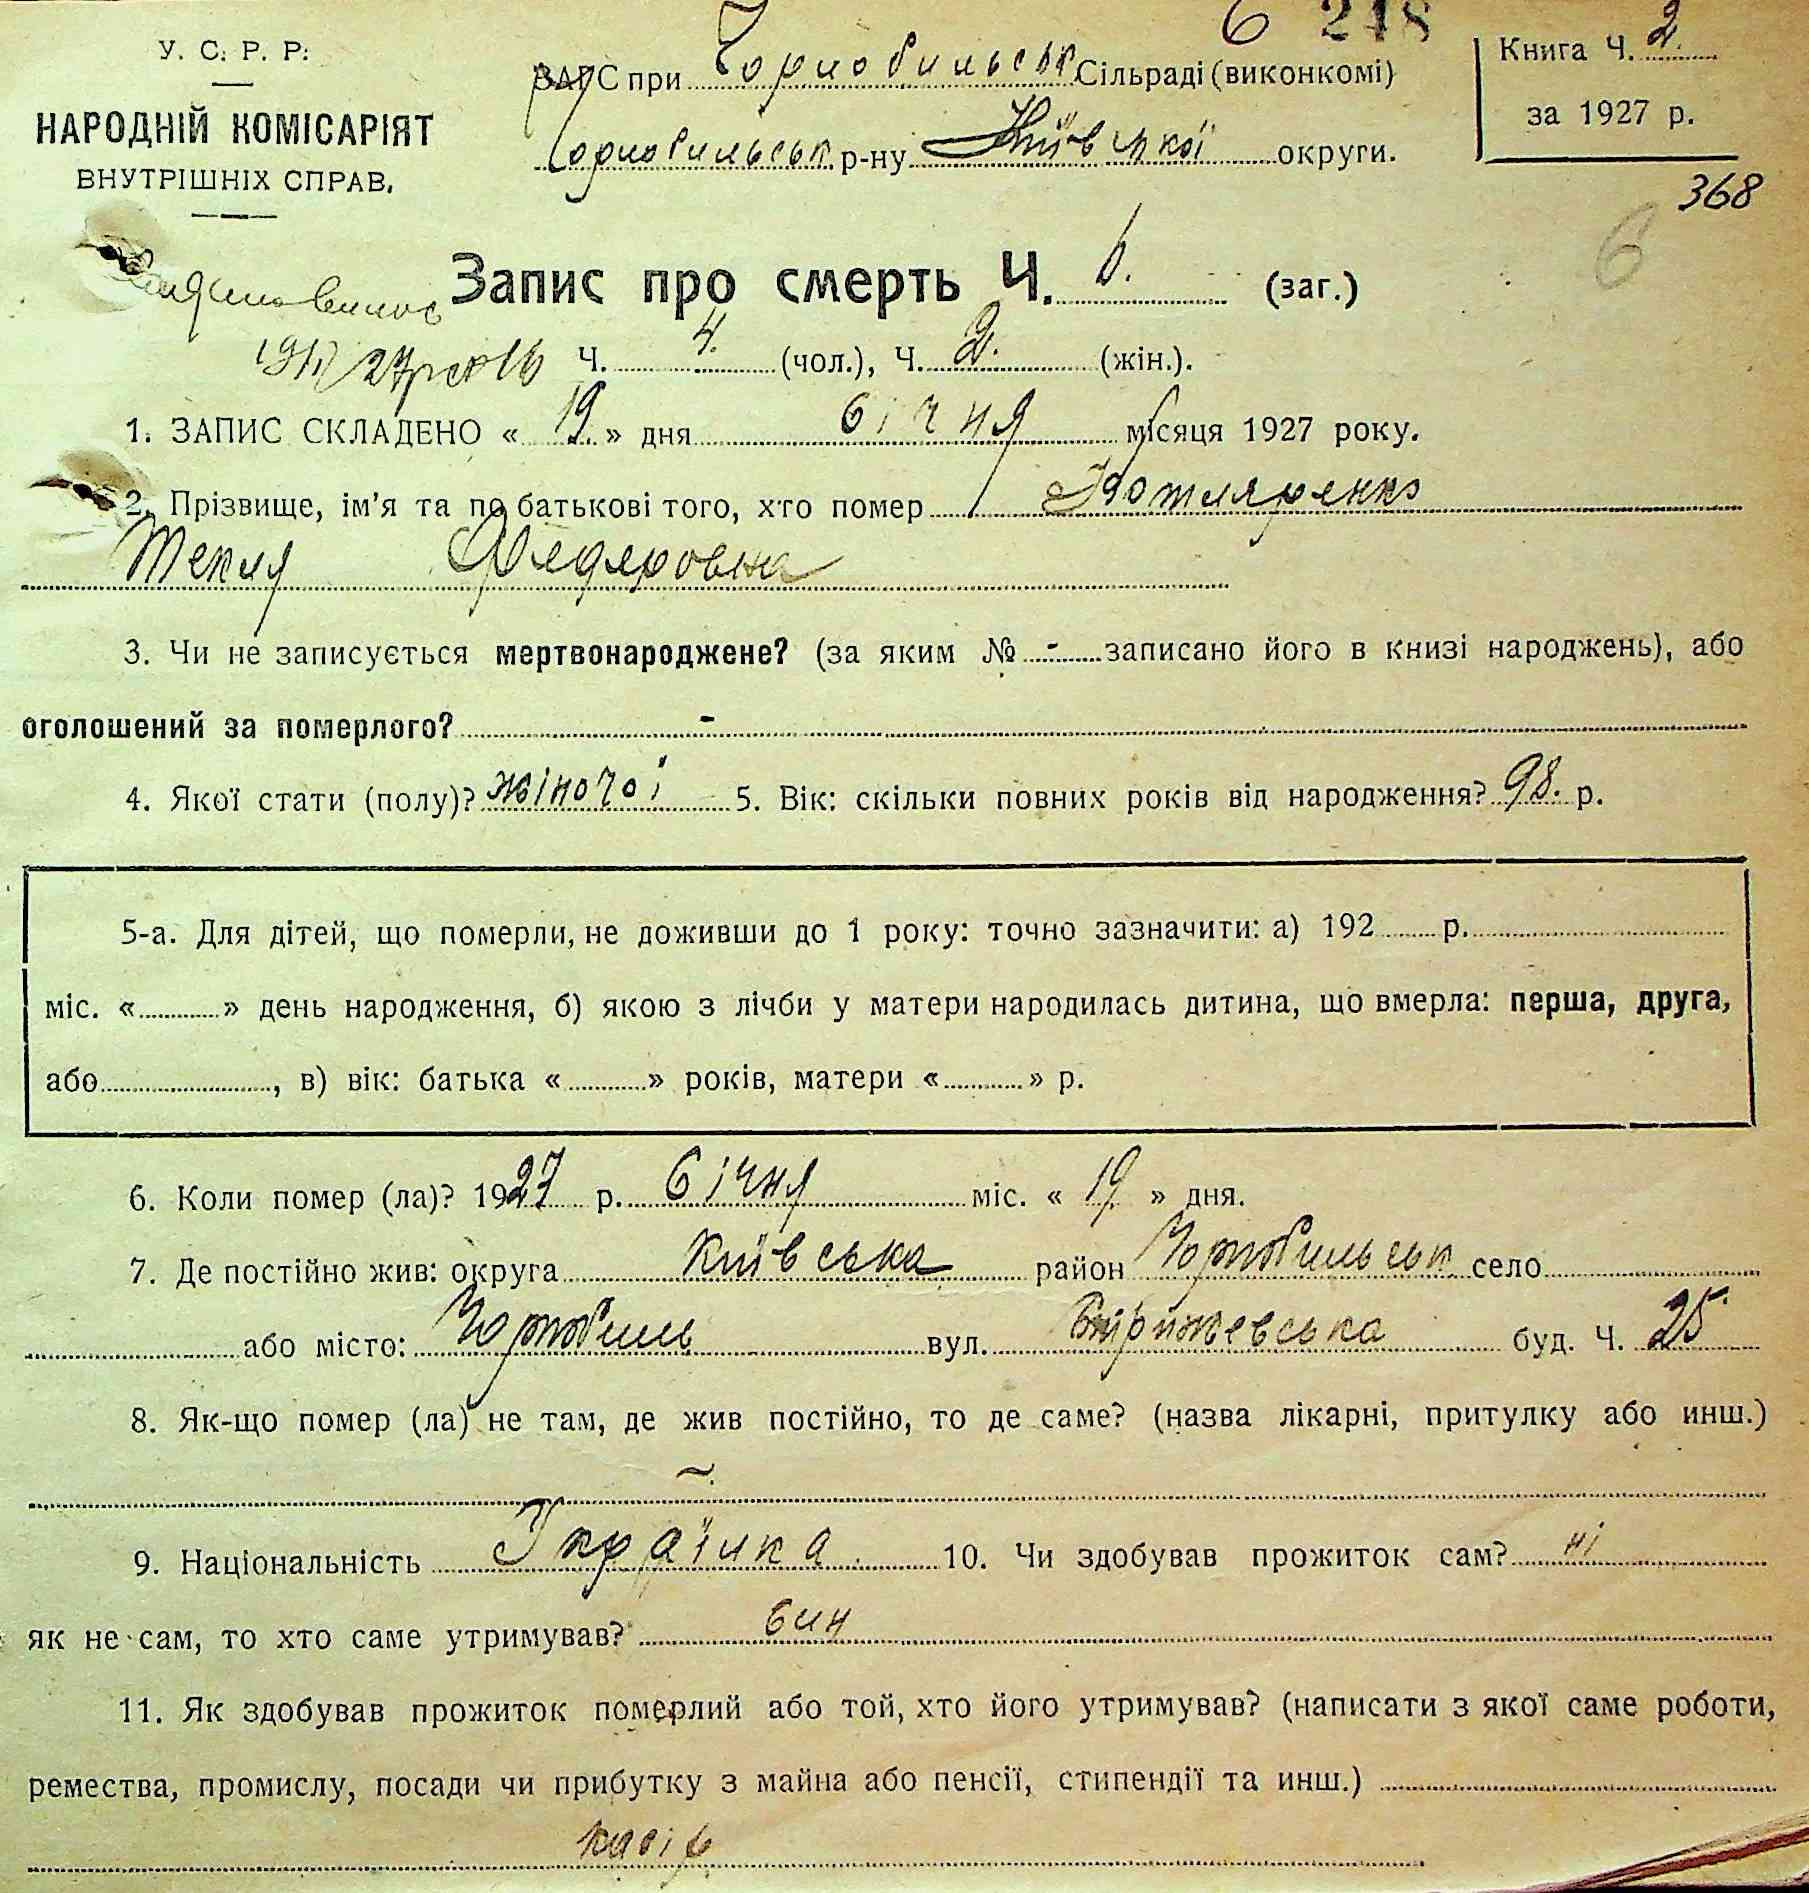 6 248
У. С. Р. Р.
ЗАГС при Чорнобильськ Сільраді (виконкомі)
Книга Ч. 2.
НАРОДНІЙ КОМІСАРІЯТ
Чорнобильськ. р-ну Київської округи.
за 1927 р.
ВНУТРІШНІХ СПРАВ.
368
6
Запис про смерть Ч. 6. (заг.)
19/I 27 Ч. 4. (чол.), Ч. 2. (жін.).
1. ЗАПИС СКЛАДЕНО « 19 » дня січня місяця 1927 року.
2. Прізвище, ім'я та по батькові того, хто помер Котляренко
Текля Фядяровна
3. Чи не записується мертвонароджене? (за яким № - записано його в книзі народжень), або
оголошений за померлого? -
4. Якої стати (полу)? жіночоі 5. Вік: скільки повних років від народження? 98. р.
5-а. Для дітей, що померли, не доживши до 1 року: точно зазначити: а) 192 р.
міс. « » день народження, б) якою з лічби у матери народилась дитина, що вмерла: перша, друга,
або , в) вік: батька « » років, матери « » р.
6. Коли помер (ла)? 1927 р. січня міс. « 19 » дня.
7. Де постійно жив: округа Київська район Чорнобильськ село
або місто: Чорнобиль вул. буд. Ч. 25
8. Як-що помер (ла) не там, де жив постійно, то де саме? (назва лікарні, притулку або инш.)
~
9. Національність Українка 10. Чи здобував прожиток сам? ні
як не сам, то хто саме утримував? син
11. Як здобував прожиток померлий або той, хто його утримував? (написати з якої саме роботи,
ремества, промислу, посади чи прибутку з майна або пенсії, стипендії та инш.)